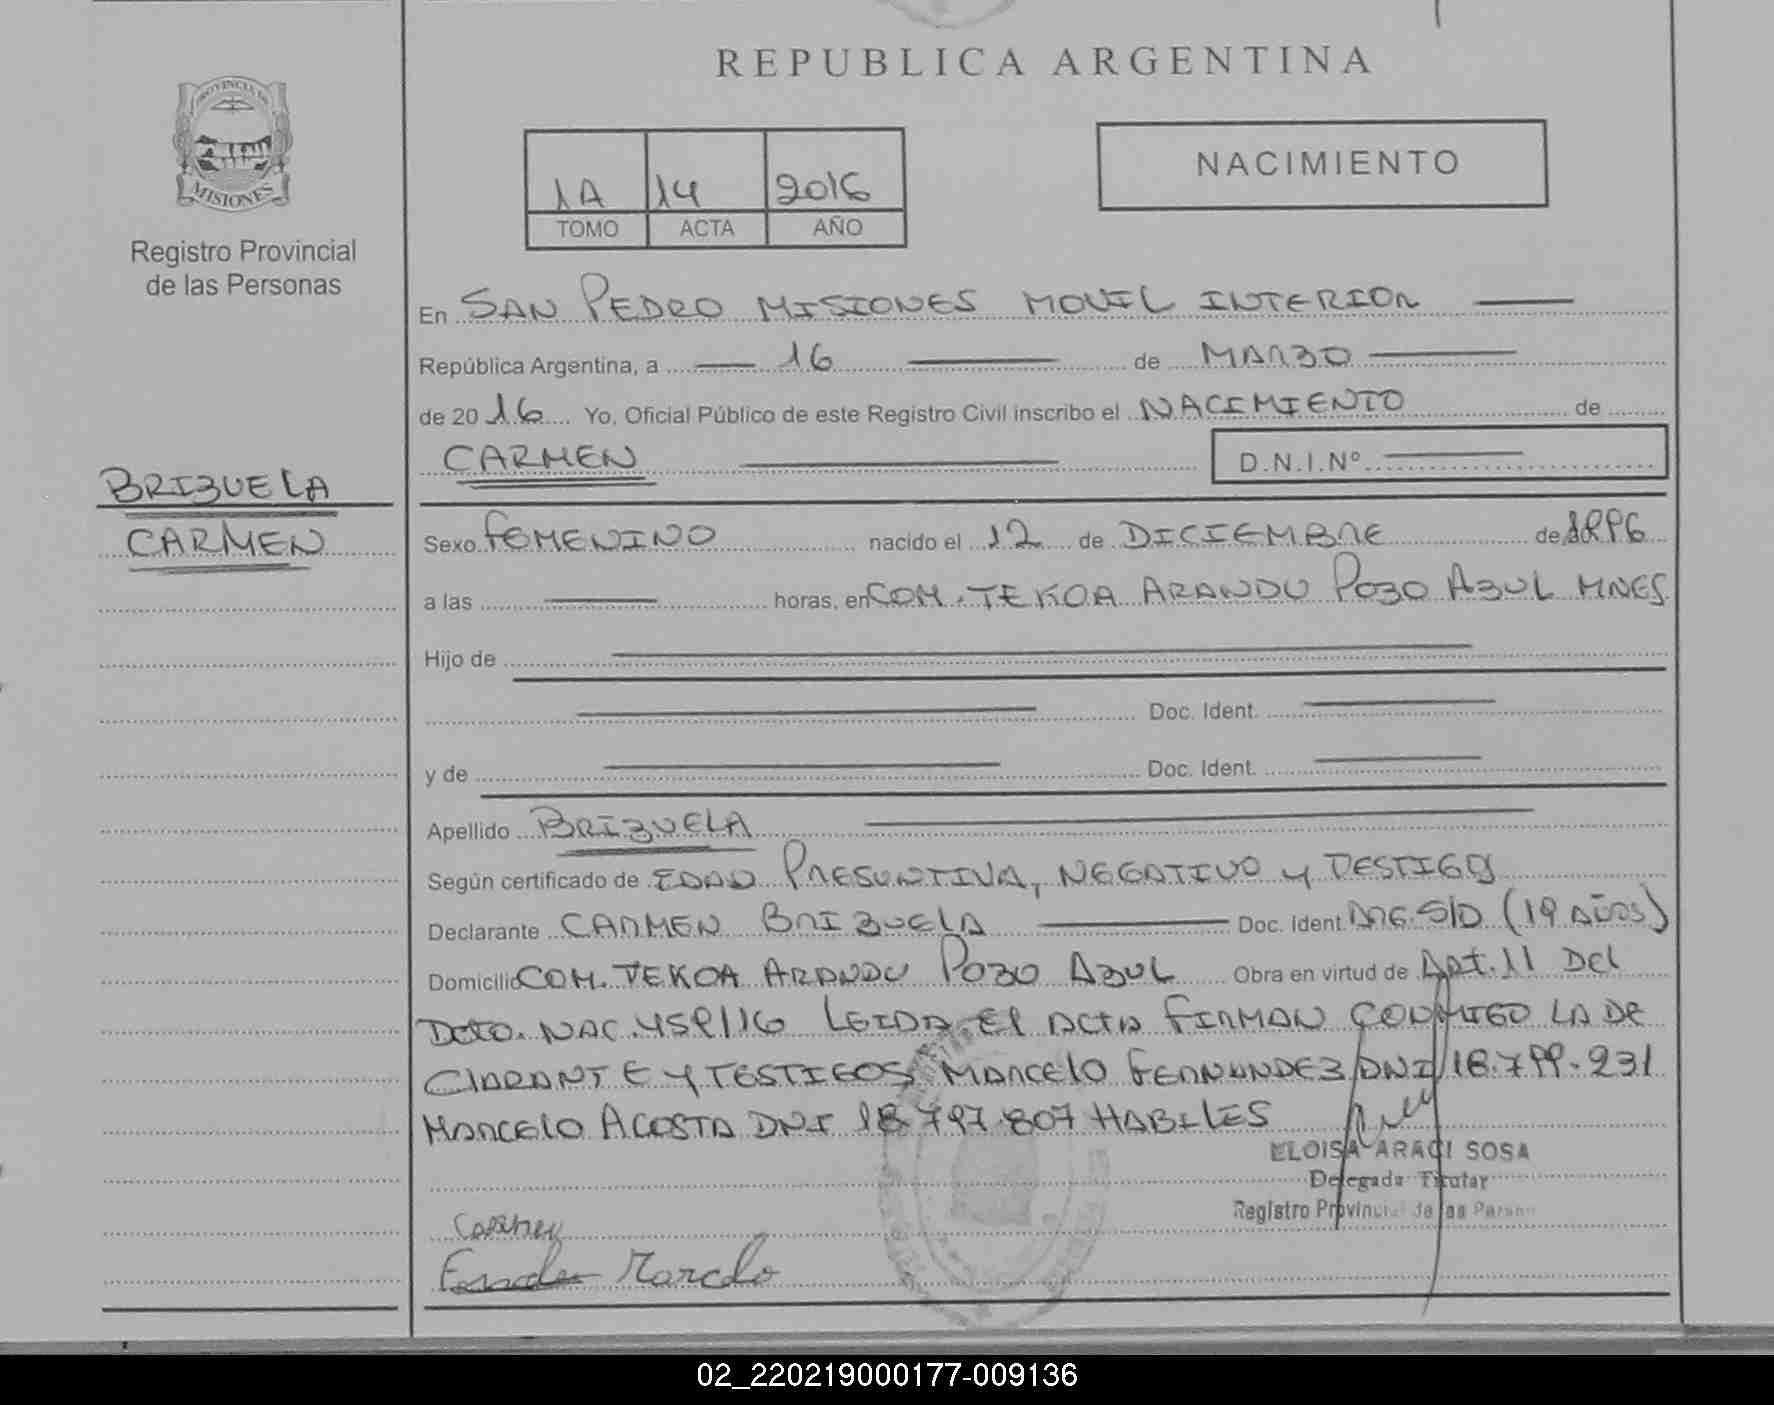 REPUBLICA ARGENTINA
PROVINCIA DE
MISIONES
Registro Provincial
de las Personas
1A 14 2016
TOMO ACTA AÑO
NACIMIENTO
En SAN PEDRO MISIONES MOVIL INTERIOR
República Argentina, a 16 de MARZO
de 2016 Yo, Oficial Público de este Registro Civil inscribo el NACIMIENTO de
CARMEN D.N.I.Nº
BRIZUELA
CARMEN
Sexo FEMENINO nacido el 12 de DICIEMBRE de 1996
a las horas, en COM. TEKOA ARANDU POZO AZUL MNES
Hijo de
Doc. Ident.
y de Doc. Ident.
Apellido BRIZUELA
Según certificado de EDAD PRESUNTIVA, NEGATIVO y TESTIGOS
Declarante CARMEN BRIZUELA Doc. Ident. ARG. S/D (19 AÑOS)
Domicilio COM. TEKOA ARANDU POZO AZUL Obra en virtud de ART. 11 DEL
DCTO. NAC. 459/16 LEIDA EL ACTA FIRMAN CONMIGO LA DE
CLARANTE Y TESTIGOS MARCELO FERNANDEZ DNI 18.799.231
MARCELO ACOSTA DNI 18.797.807 HABILES
ELOISA ARACI SOSA
Delegada Titular
Registro Provincial de las Personas
Carmen
Marcelo
02_220219000177-009136